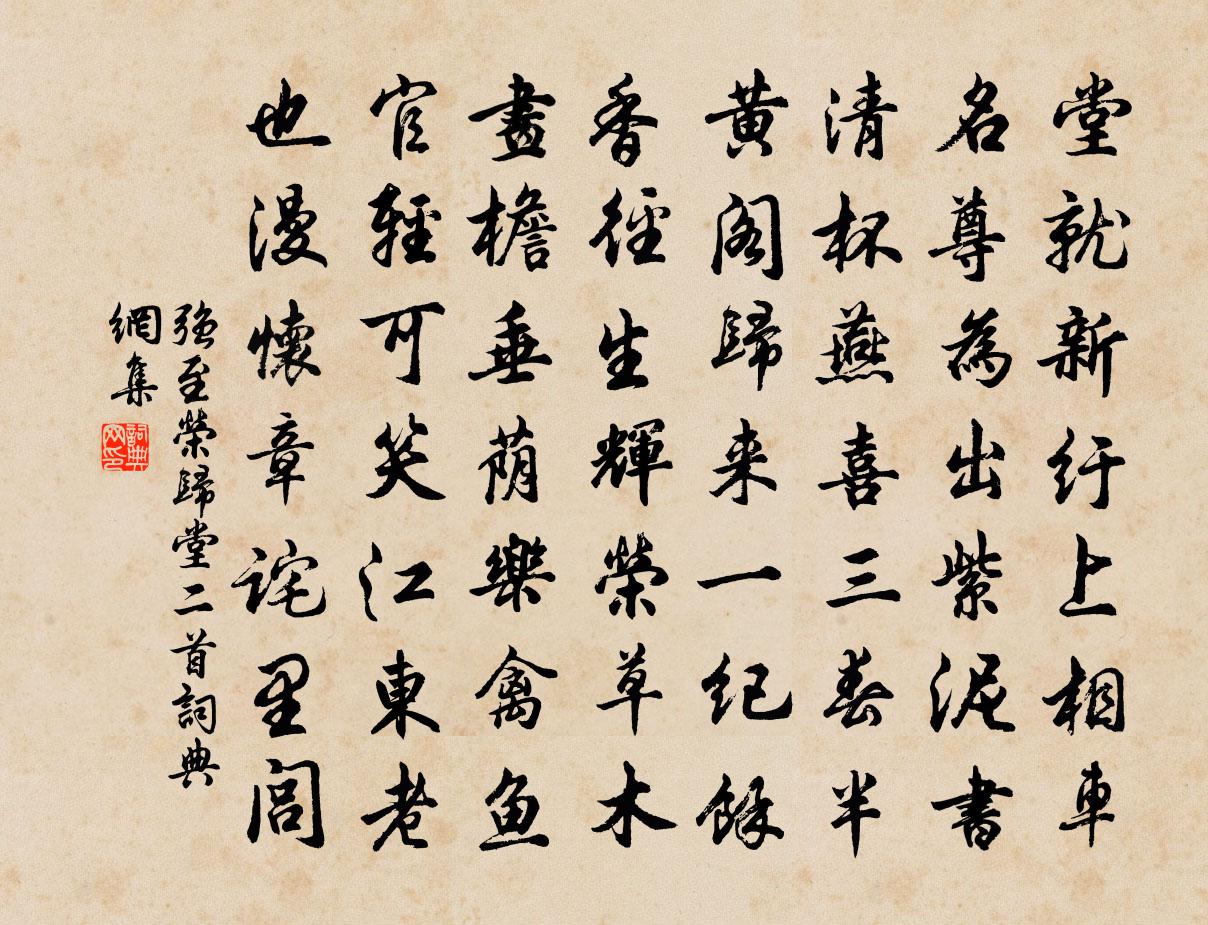 堂就新紆上相車
名尊為出紫泥書
清杯燕喜三春半
黄阁歸来一纪餘
香徑生輝榮草木
畫檐垂荫樂禽鱼
官輕可笑江東老
也漫懷章詫里閭
強至榮歸堂二首詞典
網集
詞典网印